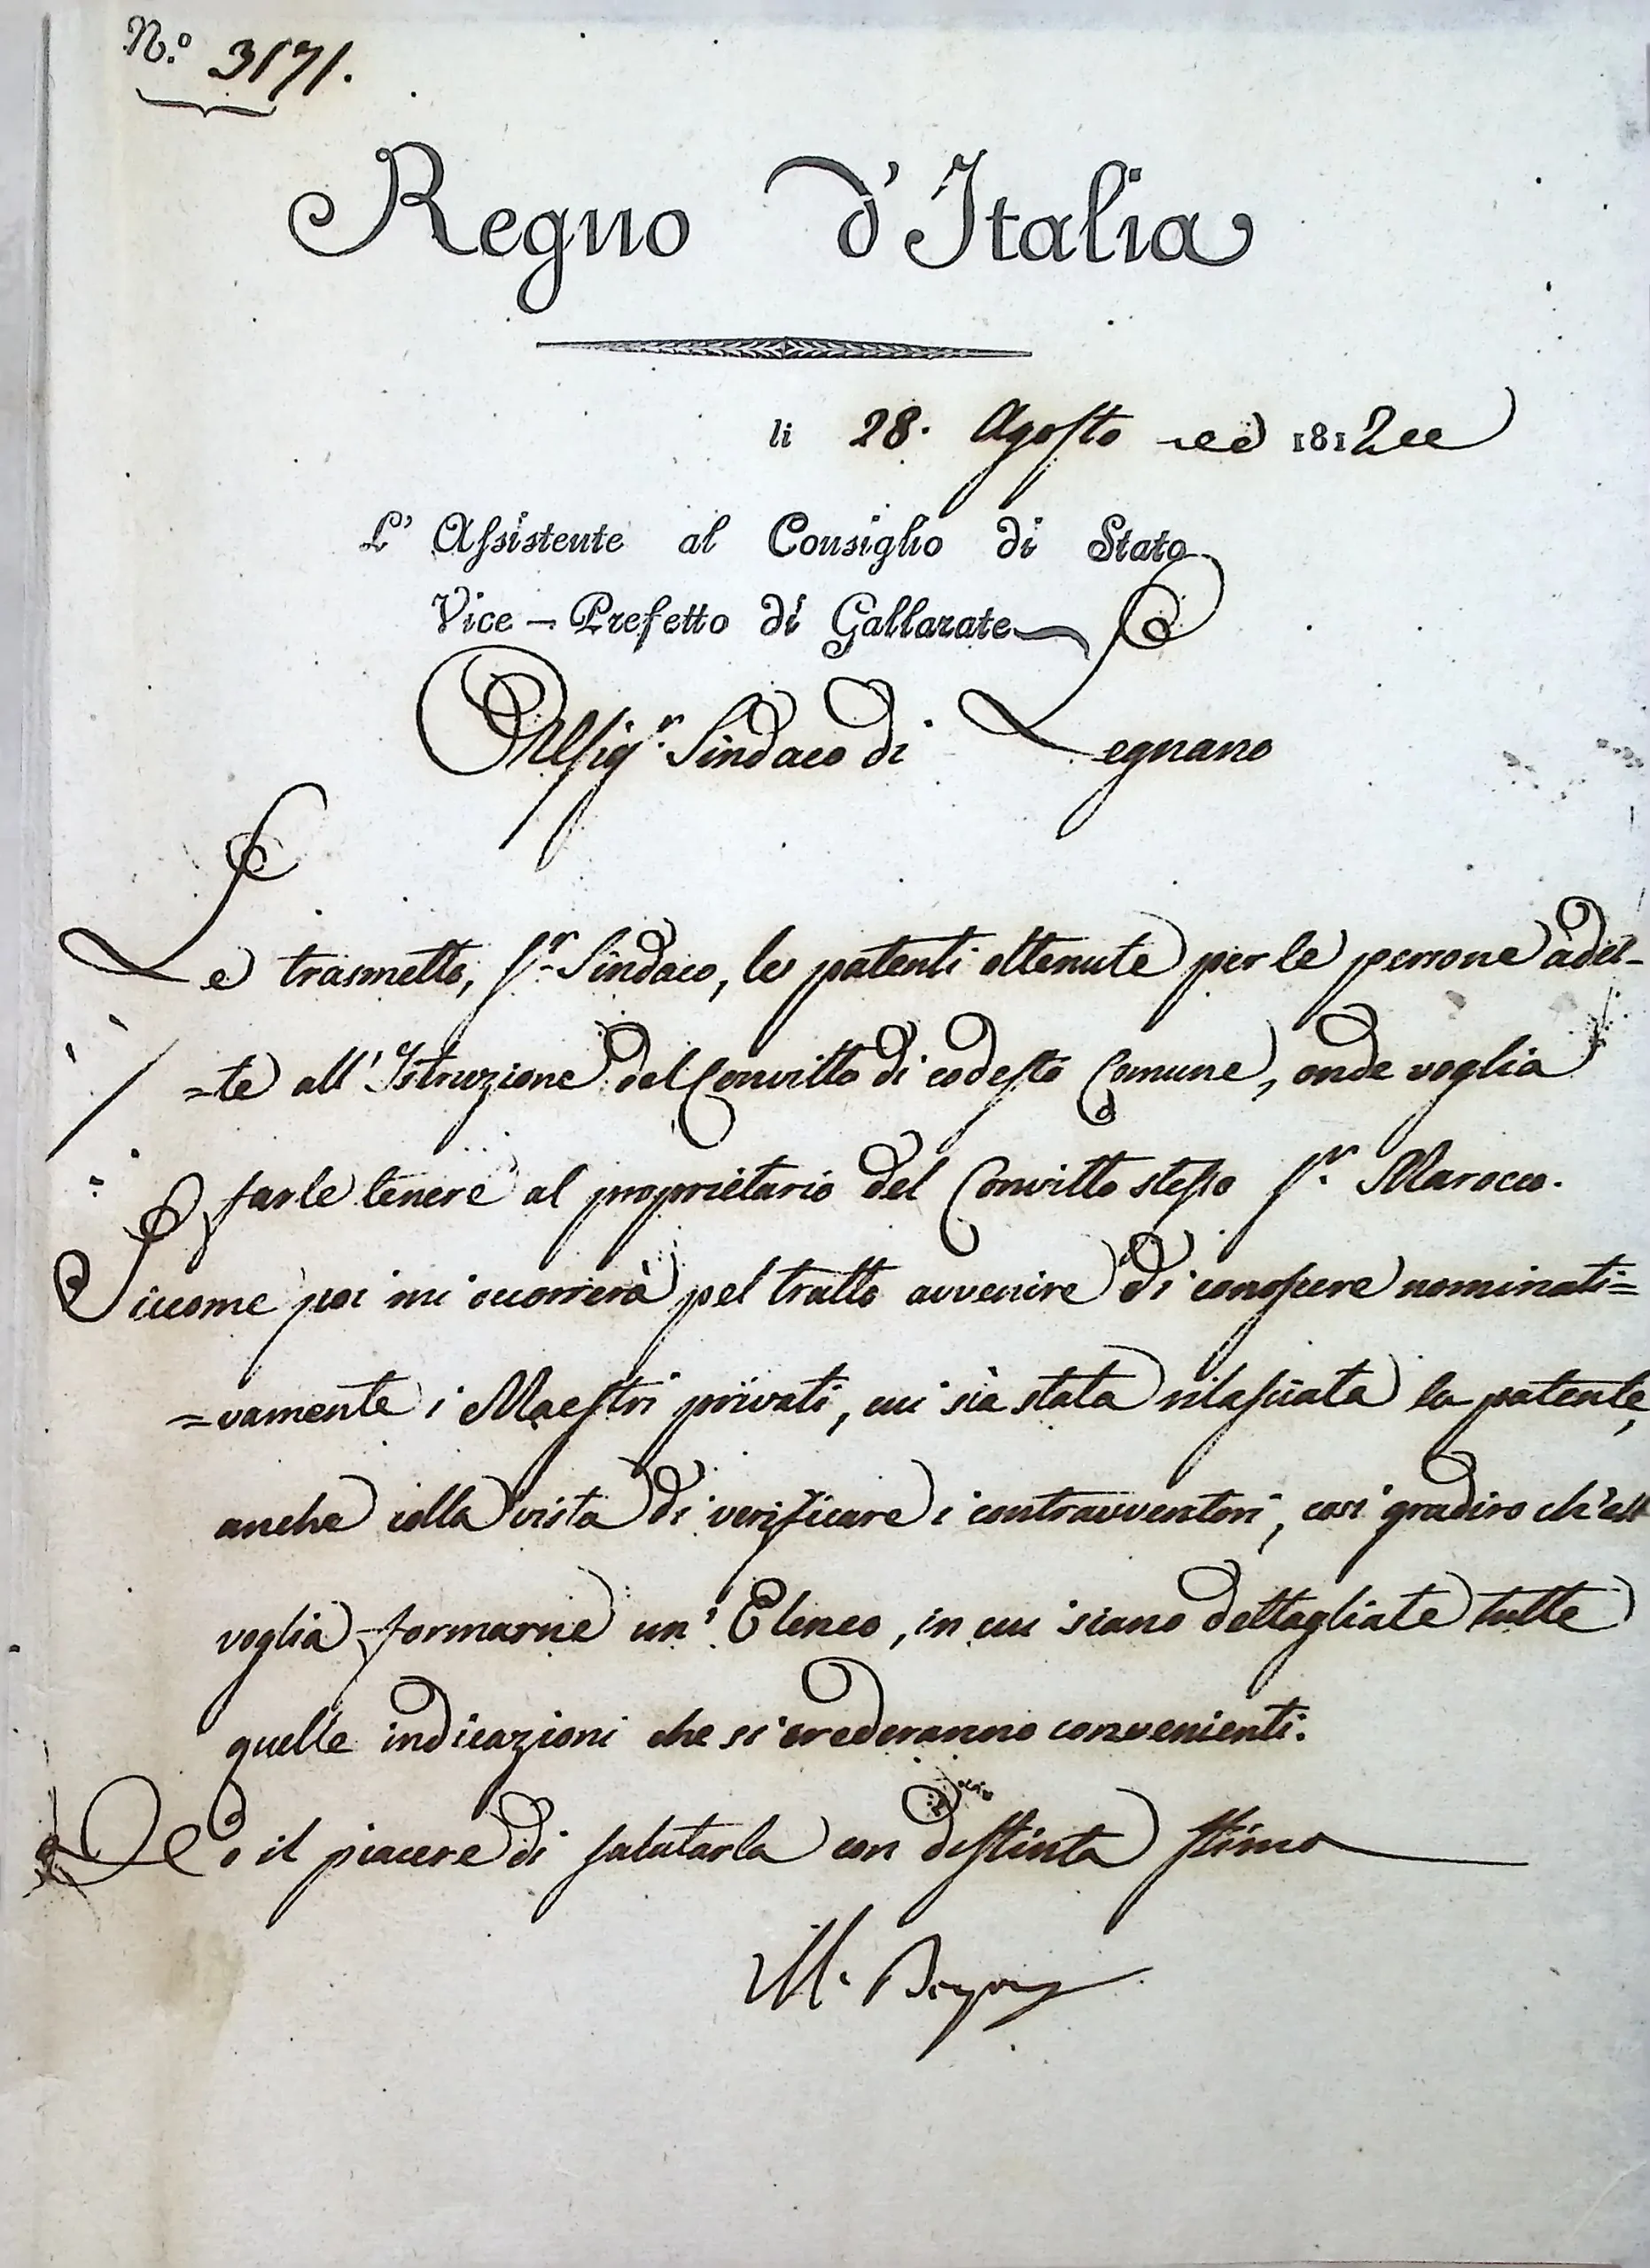 N.º 3171.
Regno d'Italia
li 28. Agosto 1812
L' Assistente al Consiglio di Stato
Vice - Prefetto di Gallarate
Al Sig.r Sindaco di Legnano
Le trasmetto, S.r Sindaco, le patenti ottenute per le persone adet-
=te all'Istruzione del Convitto di codesto Comune, onde voglia
farle tenere al proprietario del Convitto stesso S.r Marocco.
Siccome poi mi occorrerà pel tratto avvenire di conoscere nominati=
=vamente i Maestri privati, cui sia stata rilasciata la patente,
anche colla vista di verificare i contravventori, così gradirò ch'ell
voglia formarne un' Elenco, in cui siano dettagliate tutte
quelle indicazioni che si crederanno convenienti.
Ho il piacere di salutarla con distinta stima